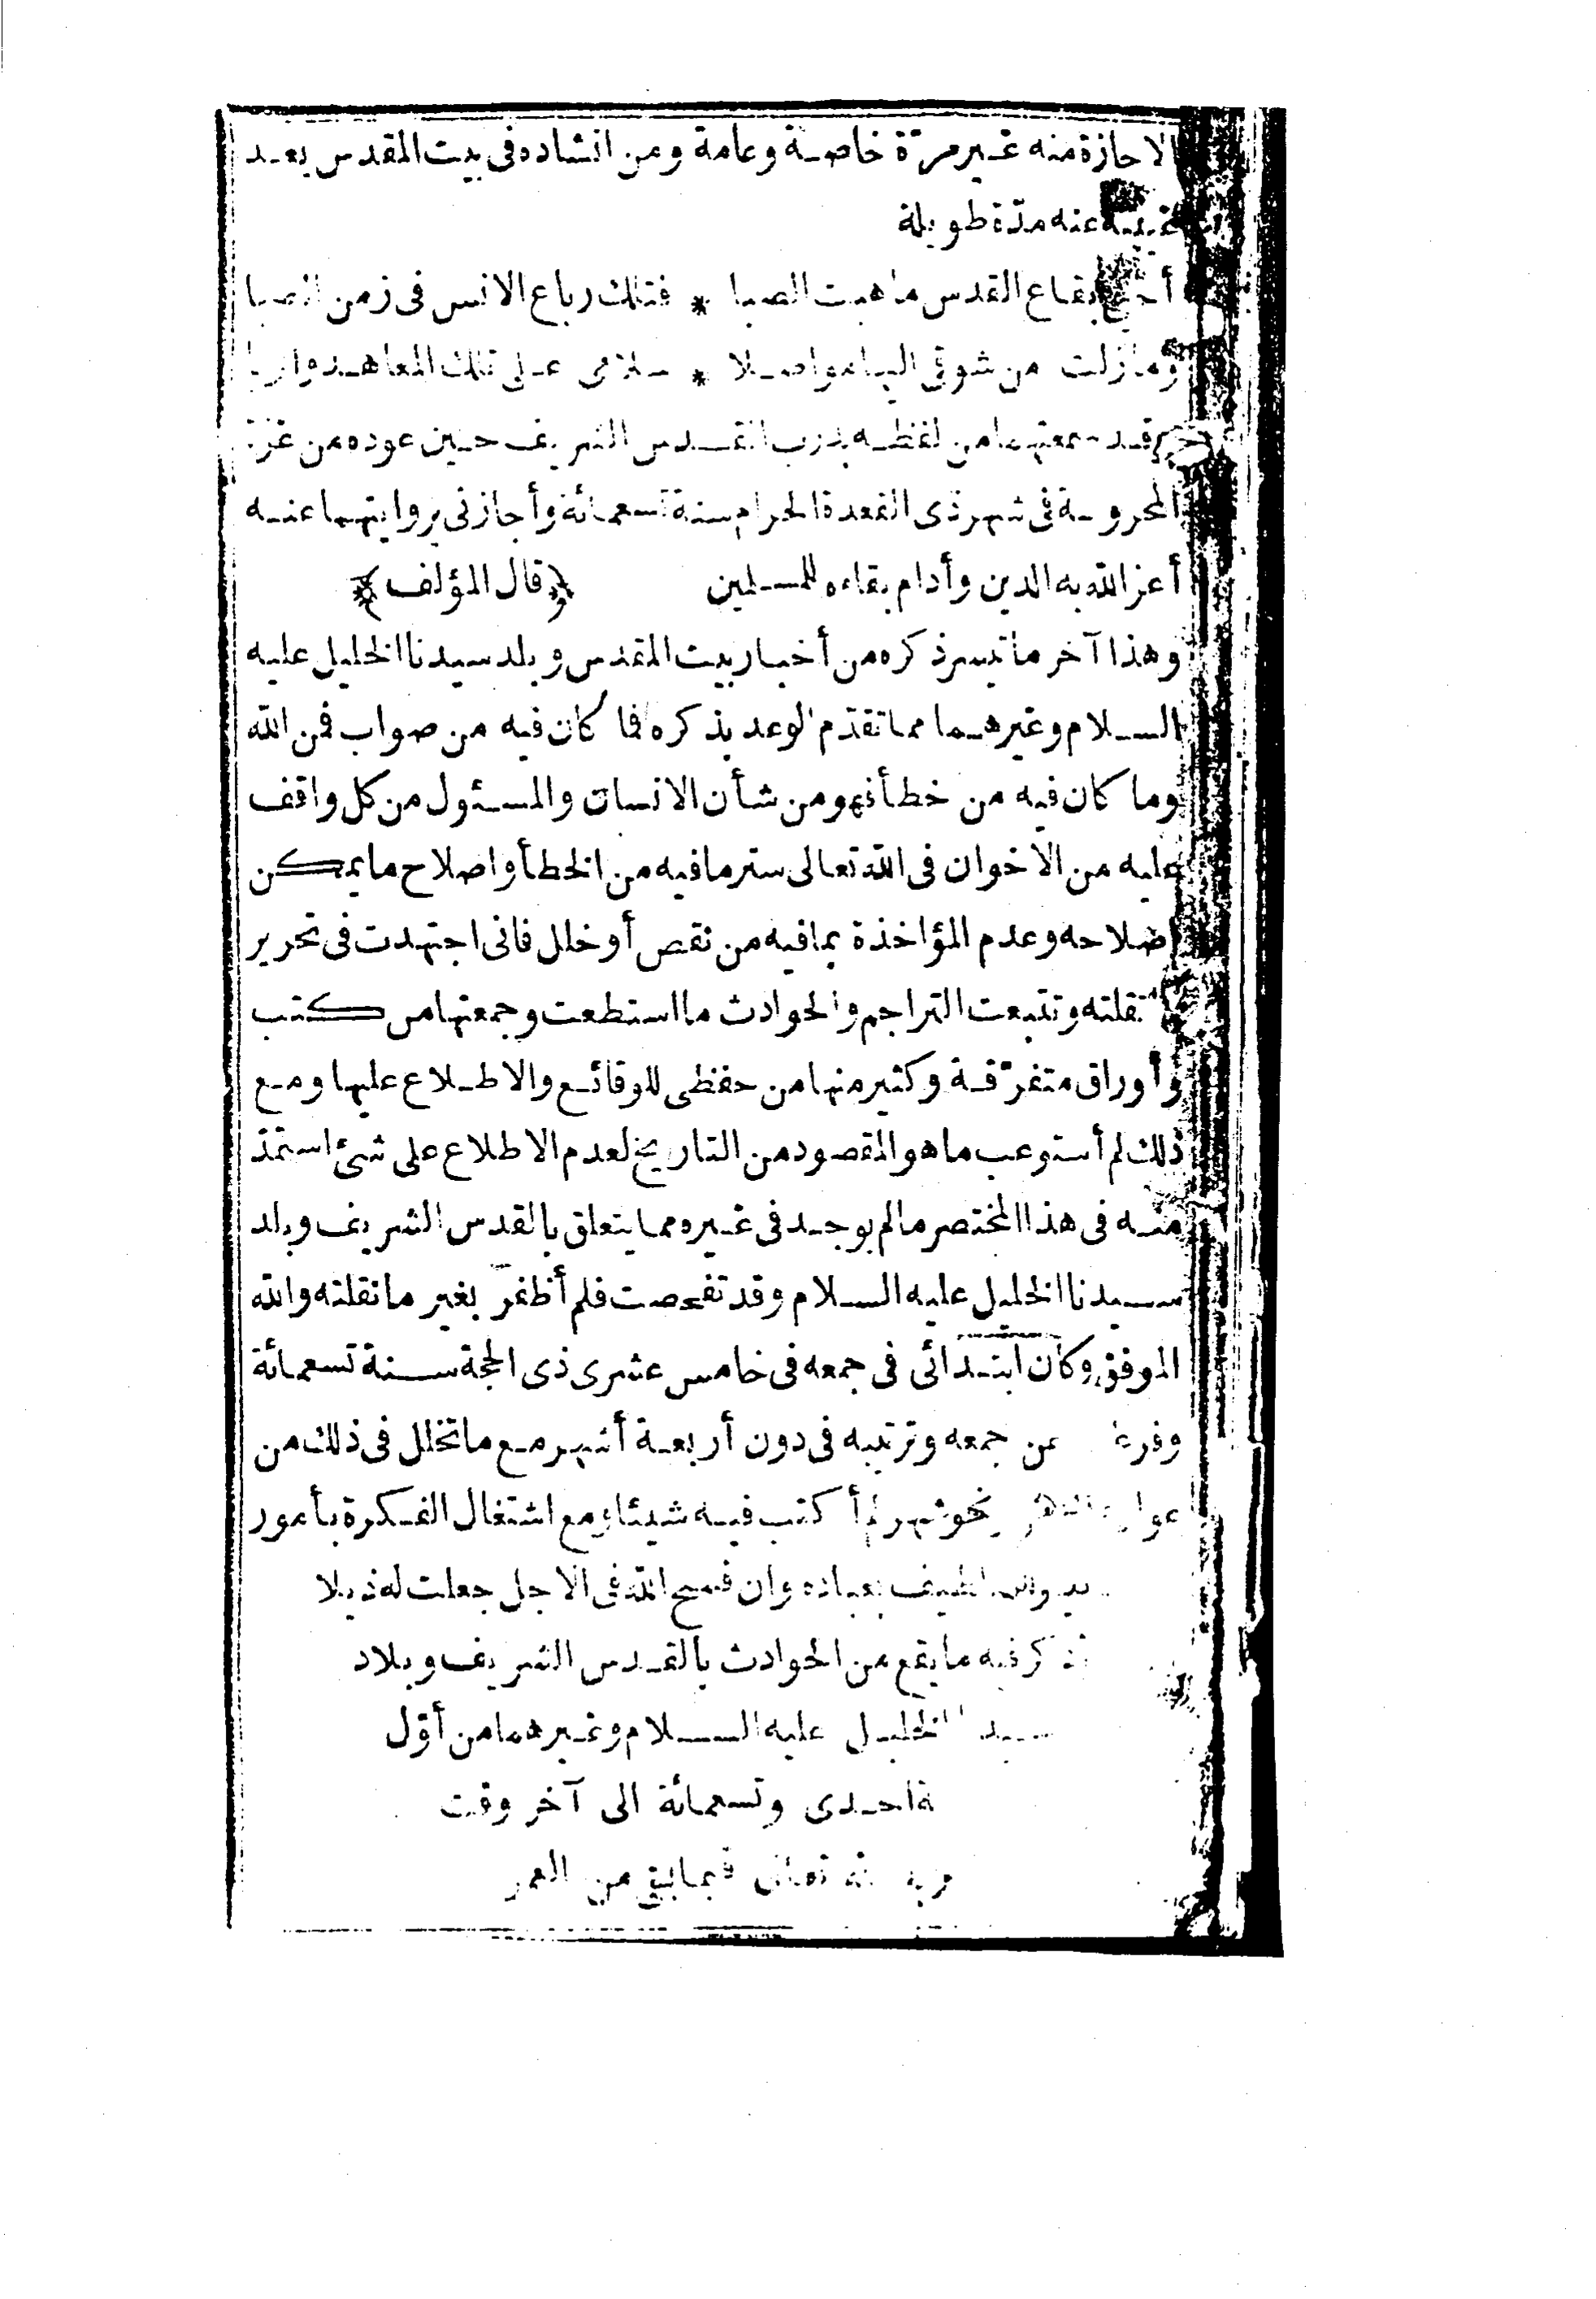 الاجازة منه غير مرّة خاصة وعامة ومن انشاده فى بيت المقدس بعد
غيبه عنه مدّة طويلة
بقاع القدس ماهبت الصبا * فتلك رباع الانس فى زمن الصبا
ومازلت من شوقى اليها مواصلا * سلامى على تلك المعاهد والربا
وقد سمعتهما من لفظه بدرب القدس الشريف حين عوده من غزة
المحروسة فى شهر ذى القعدة الحرام سنة تسعمائة وأجازنى بروايتهما عنه
أعز الله به الدين وأدام بقاءه للمسلمين ﴿قال المؤلف﴾
وهذا آخر ماتيسر ذكره من أخبار بيت المقدس وبلد سيدنا الخليل عليه
السلام وغيرهما مما تقدّم الوعد بذكره فما كان فيه من صواب فمن الله
وما كان فيه من خطأ فهو من شأن الانسان والمسئول من كل واقف
عليه من الاخوان فى الله تعالى ستر مافيه من الخطأ واصلاح مايمكن
اصلاحه وعدم المؤاخذة بمافيه من نقص أو خلل فانى اجتهدت فى تحرير
نقلته وتتبعت التراجم والحوادث ما استطعت وجمعتها من كتب
وأوراق متفرّقة وكثير منها من حفظى للوقائع والاطلاع عليها ومع
ذلك لم أستوعب ماهو المقصود من التاريخ لعدم الاطلاع على شئ استمدّ
منه فى هذا المختصر مالم يوجد فى غيره مما يتعلق بالقدس الشريف وبلد
سيدنا الخليل عليه السلام وقد تفحصت فلم أظفر بغير مانقلته والله
الموفق وكان ابتدائى فى جمعه فى خامس عشرى ذى الحجة سنة تسعمائة
من جمعه وترتيبه فى دون أربعة أشهر مع ماتخلل فى ذلك من
نحو شهر لم أكتب فيه شيئا ومع اشتغال الفكرة بأمور
لطيف بعباده وان فسح الله فى الاجل جعلت له ذيلا
كر فيه مايقع من الحوادث بالقدس الشريف وبلاد
الخليل عليه السلام وغيرهما من أوّل
احدى وتسعمائة الى آخر وقت
تعالى فيما بقى من العمر